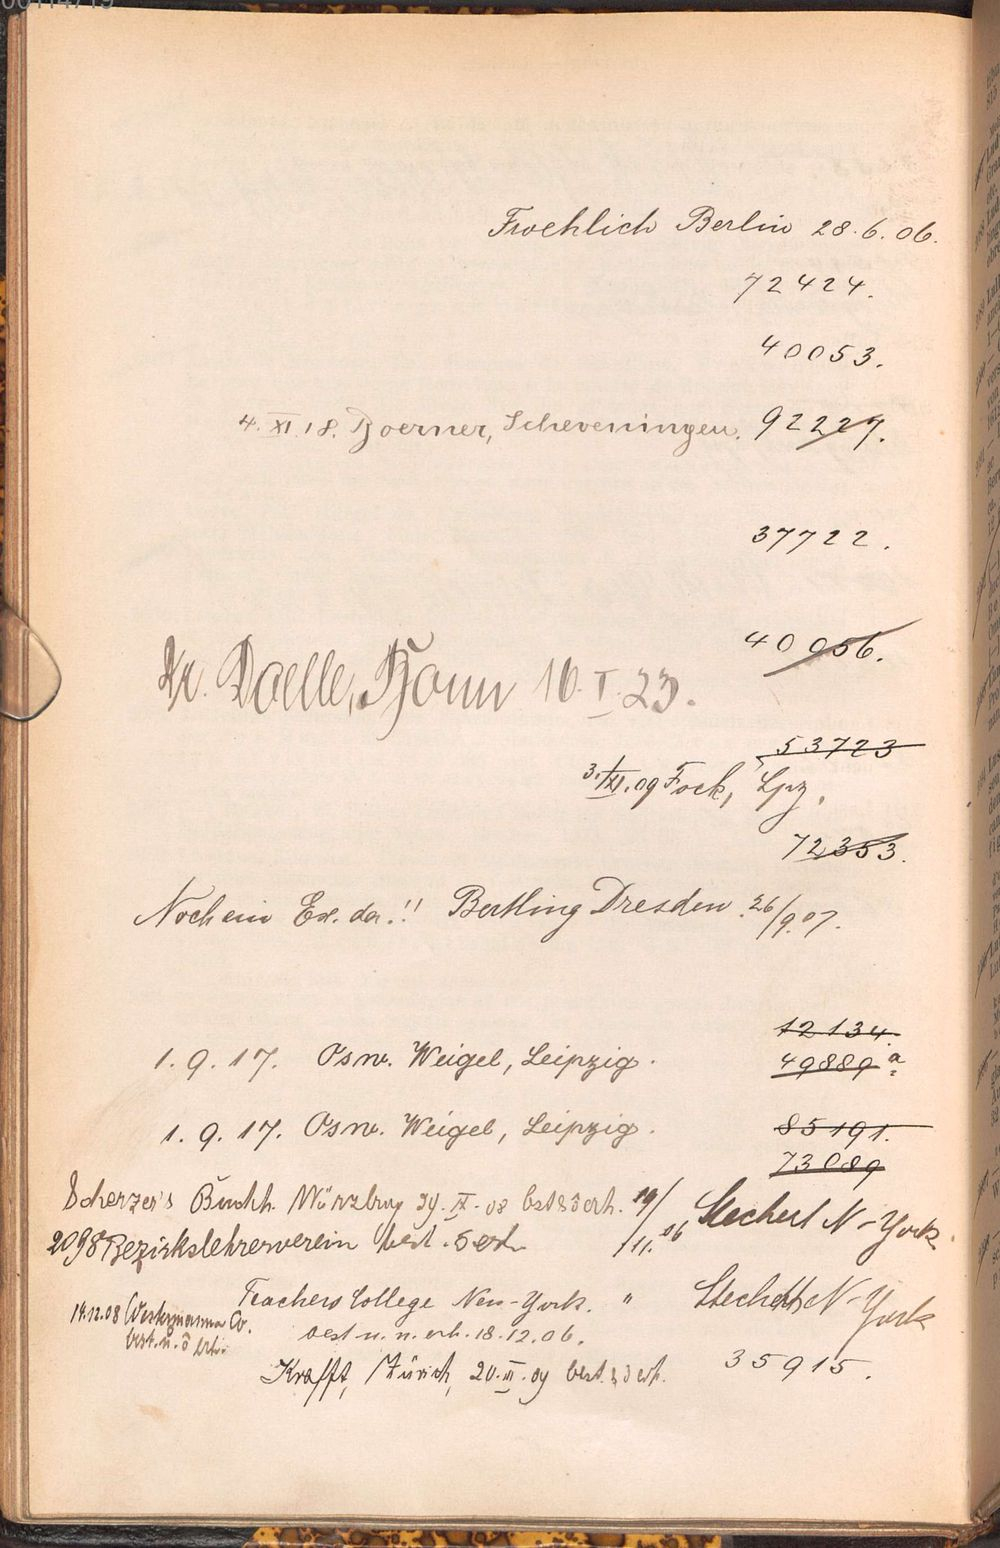 Froehlich Berlin 28.6.06.
72424.
40053.
4.XI.18. Boerner, Scheveningen. 92227.
37722.
40056.
Dr. Doelle, Bonn 10.I.23.
53723
3./XI.09 Fock, Lpz.
72353.
Noch ein Ex. da!! Bertling Dresden 26/9.07.
12134.
1.9.17. Osw. Weigel, Leipzig. 49889 a
1.9.17. Osw. Weigel, Leipzig. 85191.
73089
Scherzer's Buchh. Würzburg IX. 08 best ō erh. 14/11.06 Stechert N-York.
2098 Bezirkslehrerverein best. ō erh.
Teachers College New-York. " Stechert N-York
14.12.08 Westermann Co. best. u. n. erh. 18.12.06.
best. u. ō erh.
Krafft, Zürich, 20.III.09 best. ō erh. 35915.